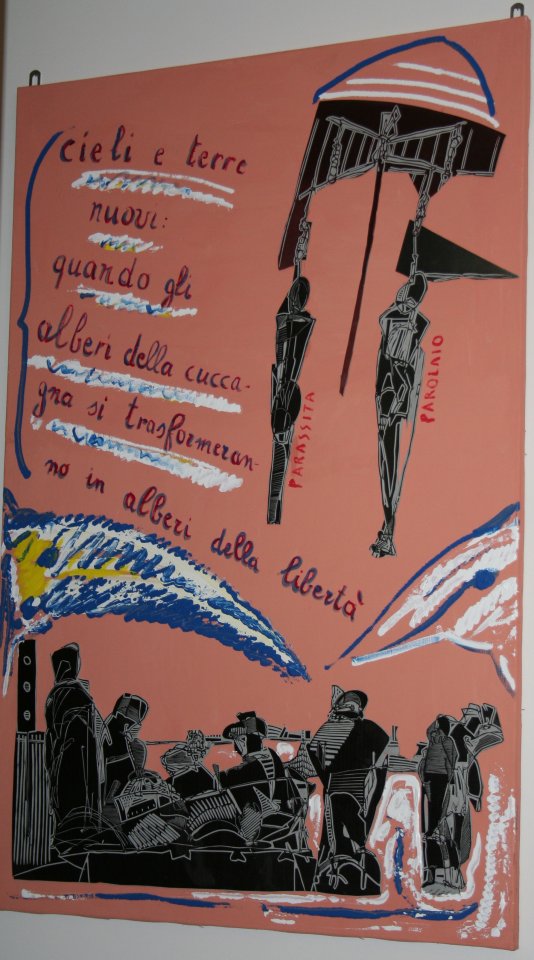 cieli e terre
nuovi:
quando gli
alberi della cucca-
gna si trasformeran-
no in alberi della libertà
PARASSITA
PAROLAIO